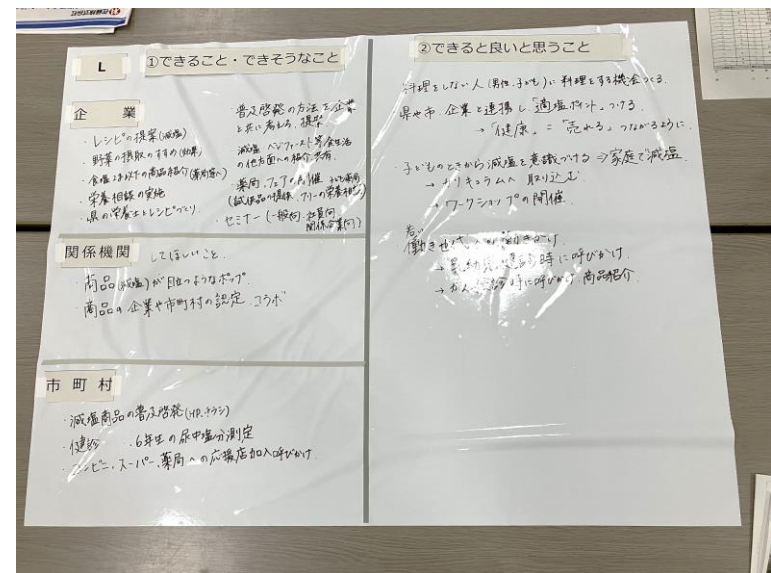 L
①できること・できそうなこと
企業
・レシピの提案(減塩)
・野菜の摂取のすすめ(効果)
・食塩2g以下の商品紹介(薬局等へ)
・栄養相談の実施
・県の栄養士とレシピづくり
・普及啓発の方法を企業
と共に考える、提案
減塩 ベジファースト等食生活
の他方面への紹介共有
・薬局、フェアの開催
(試供品の提供、フリーの栄養相談)
・セミナー(一般向、社員向
関係企業向)
関係機関
してほしいこと
・商品(減塩)が目立つようなポップ
・商品の企業や市町村の認定、コラボ
市町村
・減塩商品の普及啓発(HP、チラシ)
・健診 ・6年生の尿中塩分測定
・コンビニ、スーパー、薬局への応援店加入呼びかけ
②できると良いと思うこと
・料理をしない人(男性、子ども)に料理をする機会つくる
県や市、企業と連携し「適塩ポイント」つける
→「健康」=「売れる」つながるように
・子どものときから減塩を意識づける⇒家庭で減塩
→カリキュラムへ取り込む
→ワークショップの開催
若い
働き世代への働きかけ
→乳幼児健診時に呼びかけ
→がん検診時に呼びかけ、商品紹介